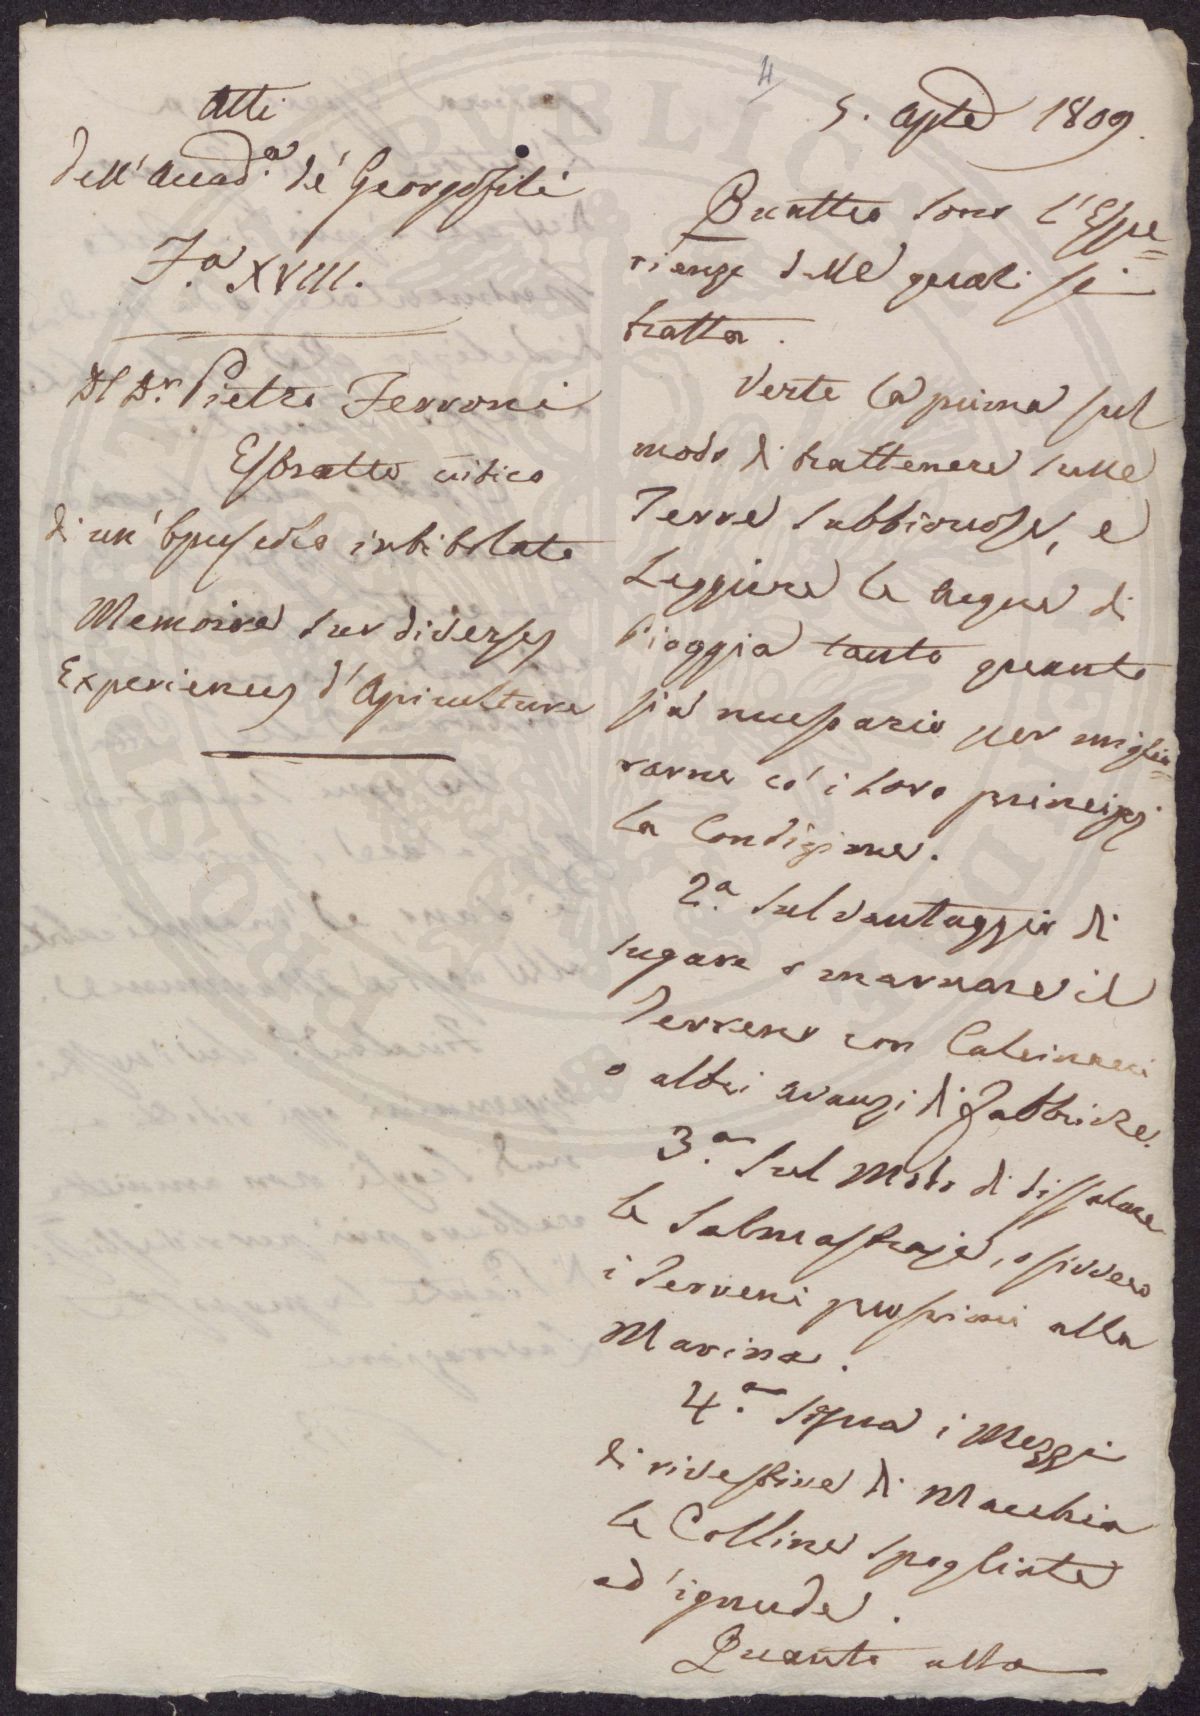 4
Atti
dell'Accad.ª de' Georgofili
T.º XVIII.
Del Dr. Pietro Ferroni
Estratto critico
di un' Opuscolo intitolato
Memoires sur diverses
Experiences d'Agriculture
5. Aple 1809.
Quattro sono l'Espe=
rienze delle quali si
tratta.
Verte la prima sul
modo di trattenere sulle
Terre sabbionose, e
Leggiere le Acque di
Pioggia tanto quanto
sia necessario per miglio=
rarne co' i loro principj
la Condizione.
2.ª Sul vantaggio di
sugare o marnare il
Terreno con Calcinacci
o altri avanzi di Fabbriche.
3.ª Sul Modo di dissalare
le Salmastraje, o sivvero
i Terreni prossimi alla
Marina.
4.ª Sopra i Mezzi
di rivestire di Macchia
le Colline spogliate
ed' ignude.
Quanto alla